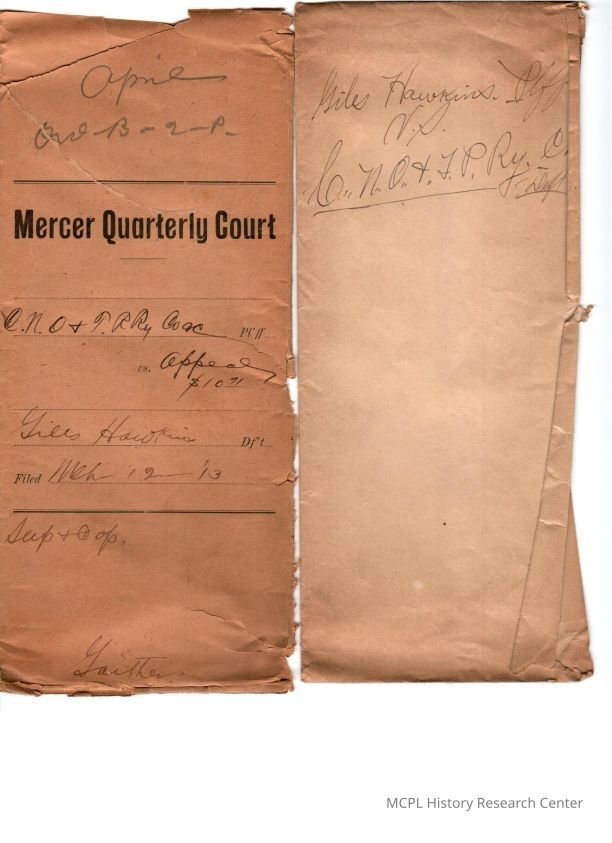 April
Ord-B-2-P-
Mercer Quarterly Court
C. N. O & T. P. Ry Co &c Pl'ff
vs. Appeal
$10 71
Giles Hawkins Df't
Filed Mch 12 '13
Sup + Cop.
Gaither
Giles Hawkins. Plff
V.S.
C. N. O. & T. P. Ry. C.
Deft
MCPL History Research Center